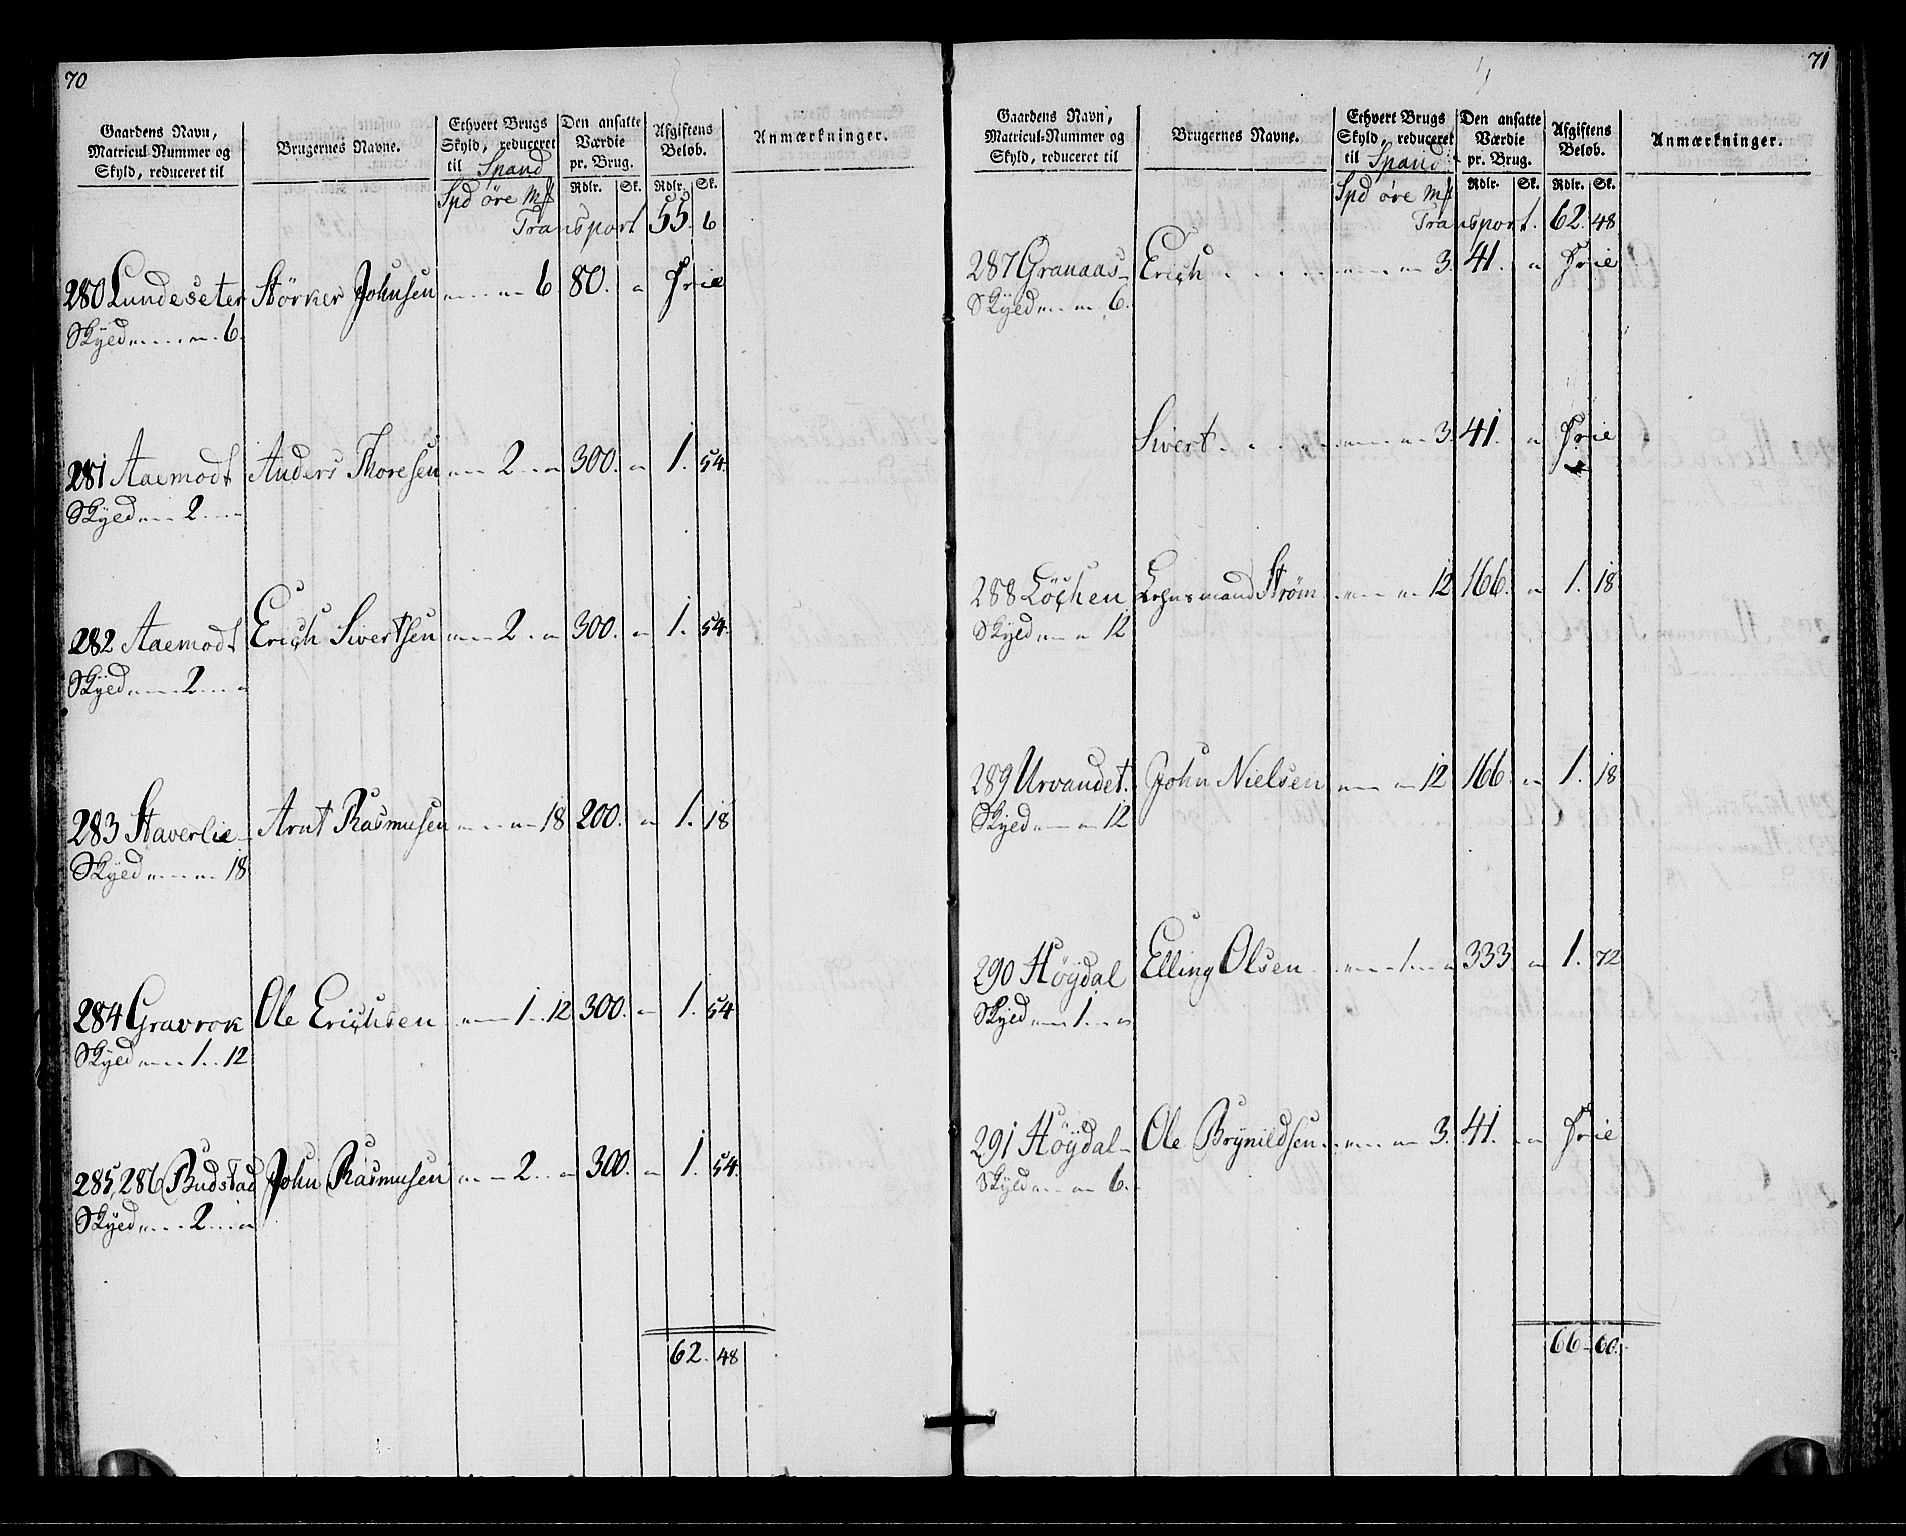 70
Gaardens Navn, Matricul-Nummer og Skyld, reduceret til
Brugernes Navne.
Ethvert Brugs Skyld, reduceret til Spand
Den ansatte Værdie pr. Brug.
Afgiftens Beløb.
Anmærkninger.
Spd øre Mk
Rdlr. Sk. Rdlr. Sk.
Transport 55. 6
280 Lundeseter Størker Johnsen 6 80. " Frie
Skyed 6.
281 Aaemodt Anders Thoresen 2 " 300. " 1. 54
Skyed 2
282 Aaemodt Erich Sivertsen 2 " 300. " 1. 54.
Skyed 2 "
283 Staverlie Arnt Rasmusen 18 200. " 1. 18
Skyed 18
284 Gravrok Ole Erichsen 1 12 300. " 1. 54
Skyed 1 12
285, 286 Budstad John Rasmusen 2 " 300. " 1. 54.
Skyed 2 "
62. 48
71
Gaardens Navn, Matricul-Nummer og Skyld, reduceret til
Brugernes Navne.
Ethvert Brugs Skyld, reduceret til Spand
Den ansatte Værdie pr. Brug.
Afgiftens Beløb.
Anmærkninger.
Spd øre Mk
Rdlr. Sk. Rdlr. Sk.
Transport. 62. 48
287 Granaas Erich 3. 41. " Frie
Skyed 6.
Sivert 3. 41. " Frie
288 Löchen Lehnsmand Strøm 12 166. " 1. 18
Skyed 12
289 Urvandet. John Nielsen 12 166 " 1. 18
Skyed 12
290 Höydal Elling Olsen 1 " 333 " 1. 72
Skyed 1 "
291 Höydal Ole Brynildsen 3. 41. " Frie
Skyed 6.
66 60.